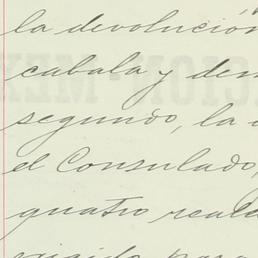 la devolución
cabala y dem
segundo, la
el Consulado,
quatro reale